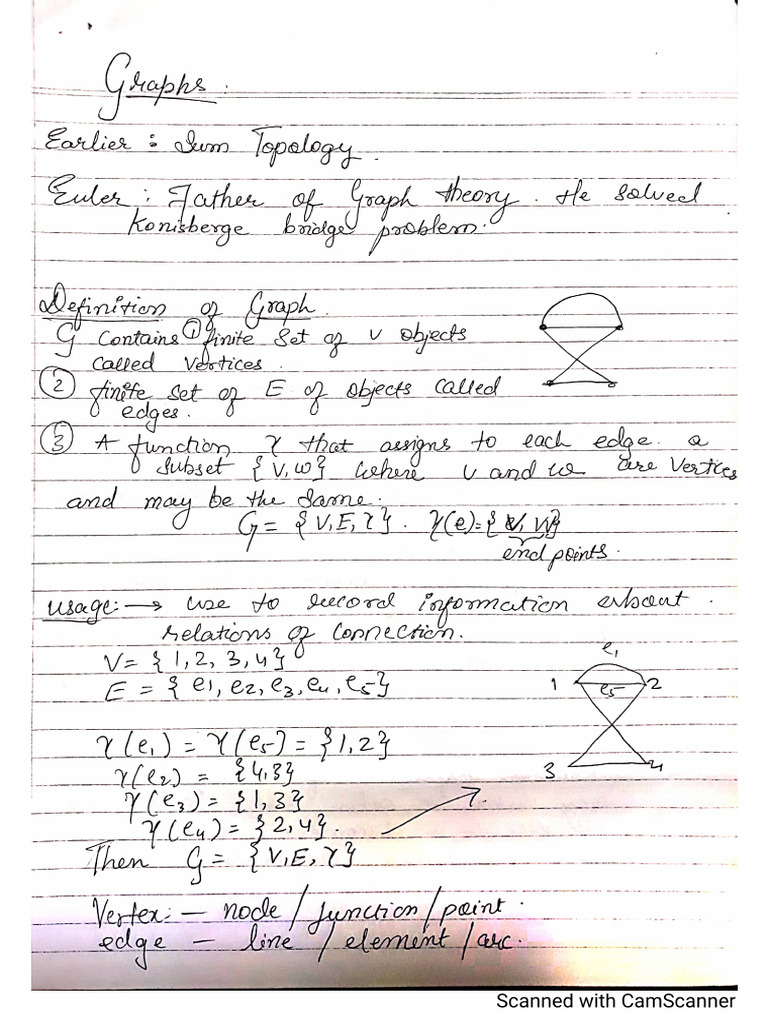 Graphs.
Earlier : Sum Topology.
Euler : Father of Graph theory. He solved
Konisberge bridge problem.
Definition of Graph.
G contains ① finite set of V objects
called vertices.
② finite set of E of objects called
edges.
③ A function γ that assigns to each edge a
subset {V, W} where V and W are vertices
and may be the same.
G = {V, E, γ}. γ(e) = {V, W}
end points.
usage: → use to record information about.
relations of connection.
V = {1, 2, 3, 4}
E = {e1, e2, e3, e4, e5}
e1
1 e5 2
3 4
γ(e1) = γ(e5) = {1, 2}
γ(e2) = {4,3}
γ(e3) = {1,3}
γ(e4) = {2,4}.
Then G = {V, E, γ}
Vertex: - node / junction / point.
edge - line / element / arc.
Scanned with CamScanner